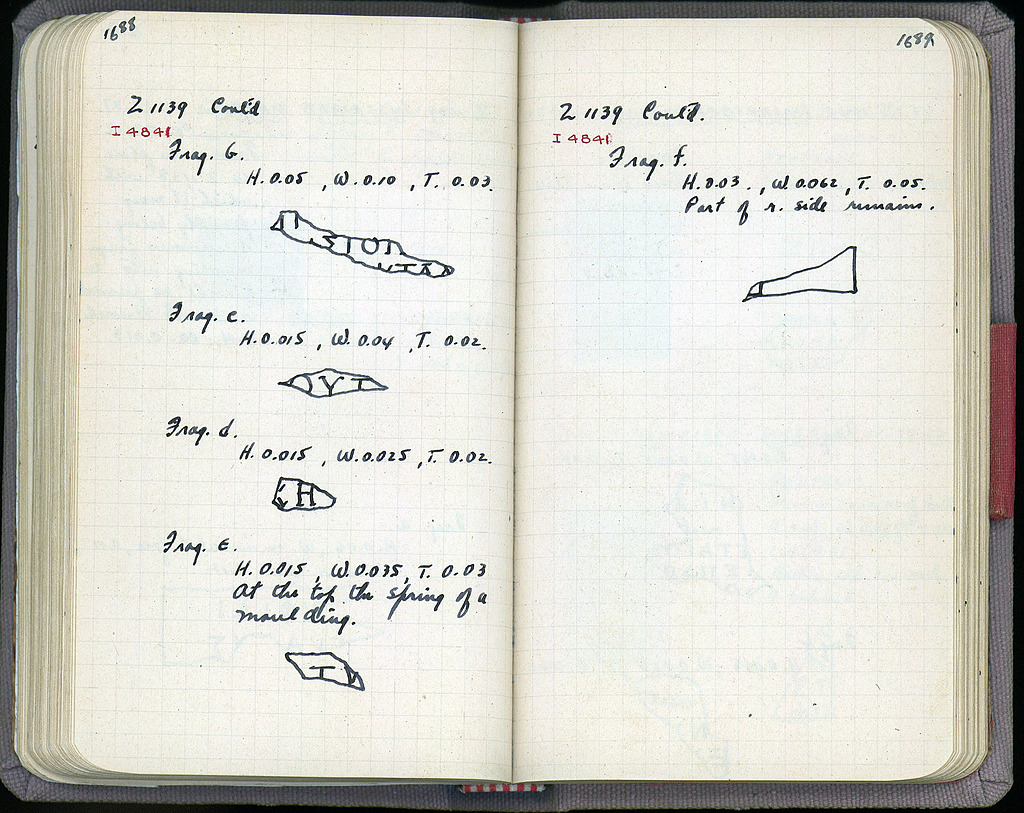 1688
Z 1139 Cont'd
I 4841
Frag. b.
H. 0.05 , W. 0.10 , T. 0.03.
ΣΤΟΙ
Frag. c.
H. 0.015 , W. 0.04 , T. 0.02.
ΟΥΤ
Frag. d.
H. 0.015 , W. 0.025 , T. 0.02.
Η
Frag. e.
H. 0.015 , W. 0.035, T. 0.03
At the top the spring of a
moulding.
1689
Z 1139 Cont'd.
I 4841
Frag. f.
H. 0.03. , W. 0.062 , T. 0.05.
Part of r. side remains.